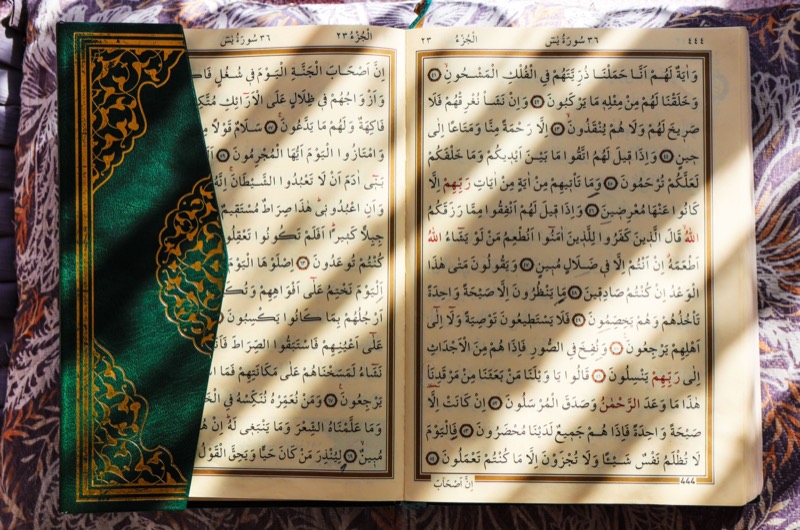 ٤٤٤ ٣٦ سُورَةُ يٰسٓ الْجُزْءُ ٢٣
وَاٰيَةٌ لَهُمْ اَنَّا حَمَلْنَا ذُرِّيَّتَهُمْ فِي الْفُلْكِ الْمَشْحُونِ ﴿٤١﴾
وَخَلَقْنَا لَهُمْ مِنْ مِثْلِه۪ مَا يَرْكَبُونَ ﴿٤٢﴾ وَاِنْ نَشَأْ نُغْرِقْهُمْ فَلَا
صَر۪يخَ لَهُمْ وَلَا هُمْ يُنْقَذُونَ ﴿٤٣﴾ اِلَّا رَحْمَةً مِنَّا وَمَتَاعًا اِلٰى
ح۪ينٍ ﴿٤٤﴾ وَاِذَا ق۪يلَ لَهُمُ اتَّقُوا مَا بَيْنَ اَيْد۪يكُمْ وَمَا خَلْفَكُمْ
لَعَلَّكُمْ تُرْحَمُونَ ﴿٤٥﴾ وَمَا تَأْت۪يهِمْ مِنْ اٰيَةٍ مِنْ اٰيَاتِ رَبِّهِمْ اِلَّا
كَانُوا عَنْهَا مُعْرِض۪ينَ ﴿٤٦﴾ وَاِذَا ق۪يلَ لَهُمْ اَنْفِقُوا مِمَّا رَزَقَكُمُ
اللّٰهُ قَالَ الَّذ۪ينَ كَفَرُوا لِلَّذ۪ينَ اٰمَنُٓوا اَنُطْعِمُ مَنْ لَوْ يَشَٓاءُ اللّٰهُ
اَطْعَمَهُ اِنْ اَنْتُمْ اِلَّا ف۪ي ضَلَالٍ مُب۪ينٍ ﴿٤٧﴾ وَيَقُولُونَ مَتٰى هٰذَا
الْوَعْدُ اِنْ كُنْتُمْ صَادِق۪ينَ ﴿٤٨﴾ مَا يَنْظُرُونَ اِلَّا صَيْحَةً وَاحِدَةً
تَأْخُذُهُمْ وَهُمْ يَخِصِّمُونَ ﴿٤٩﴾ فَلَا يَسْتَط۪يعُونَ تَوْصِيَةً وَلَٓا اِلٰٓى
اَهْلِهِمْ يَرْجِعُونَ ﴿٥٠﴾ وَنُفِخَ فِي الصُّورِ فَاِذَا هُمْ مِنَ الْاَجْدَاثِ
اِلٰى رَبِّهِمْ يَنْسِلُونَ ﴿٥١﴾ قَالُوا يَا وَيْلَنَا مَنْ بَعَثَنَا مِنْ مَرْقَدِنَا
هٰذَا مَا وَعَدَ الرَّحْمٰنُ وَصَدَقَ الْمُرْسَلُونَ ﴿٥٢﴾ اِنْ كَانَتْ اِلَّا
صَيْحَةً وَاحِدَةً فَاِذَا هُمْ جَم۪يعٌ لَدَيْنَا مُحْضَرُونَ ﴿٥٣﴾ فَالْيَوْمَ
لَا تُظْلَمُ نَفْسٌ شَيْـًٔا وَلَا تُجْزَوْنَ اِلَّا مَا كُنْتُمْ تَعْمَلُونَ ﴿٥٤﴾
444 اِنَّ اَصْحَابَ
٣٦ سُورَةُ يٰسٓ الْجُزْءُ ٢٣
اِنَّ اَصْحَابَ الْجَنَّةِ الْيَوْمَ ف۪ي شُغُلٍ
وَاَزْوَاجُهُمْ ف۪ي ظِلَالٍ عَلَى الْاَرَٓائِكِ
فَاكِهَةٌ وَلَهُمْ مَا يَدَّعُونَ ﴿٥٧﴾ سَلَامٌ قَوْلًا
وَامْتَازُوا الْيَوْمَ اَيُّهَا الْمُجْرِمُونَ ﴿٥٩﴾
بَن۪ٓي اٰدَمَ اَنْ لَا تَعْبُدُوا الشَّيْطَانَ اِنَّهُ
وَاَنِ اعْبُدُون۪ي هٰذَا صِرَاطٌ مُسْتَق۪يمٌ
جِبِلًّا كَث۪يرًا اَفَلَمْ تَكُونُوا تَعْقِلُونَ
كُنْتُمْ تُوعَدُونَ ﴿٦٣﴾ اِصْلَوْهَا الْيَوْمَ
اَلْيَوْمَ نَخْتِمُ عَلٰٓى اَفْوَاهِهِمْ
اَرْجُلُهُمْ بِمَا كَانُوا يَكْسِبُونَ
عَلٰٓى اَعْيُنِهِمْ فَاسْتَبَقُوا الصِّرَاطَ
نَشَٓاءُ لَمَسَخْنَاهُمْ عَلٰى مَكَانَتِهِمْ فَمَا
يَرْجِعُونَ ﴿٦٧﴾ وَمَنْ نُعَمِّرْهُ نُنَكِّسْهُ فِي
وَمَا عَلَّمْنَاهُ الشِّعْرَ وَمَا يَنْبَغ۪ي لَهُ اِنْ
مُب۪ينٌ ﴿٦٩﴾ لِيُنْذِرَ مَنْ كَانَ حَيًّا وَيَحِقَّ الْقَوْلُ